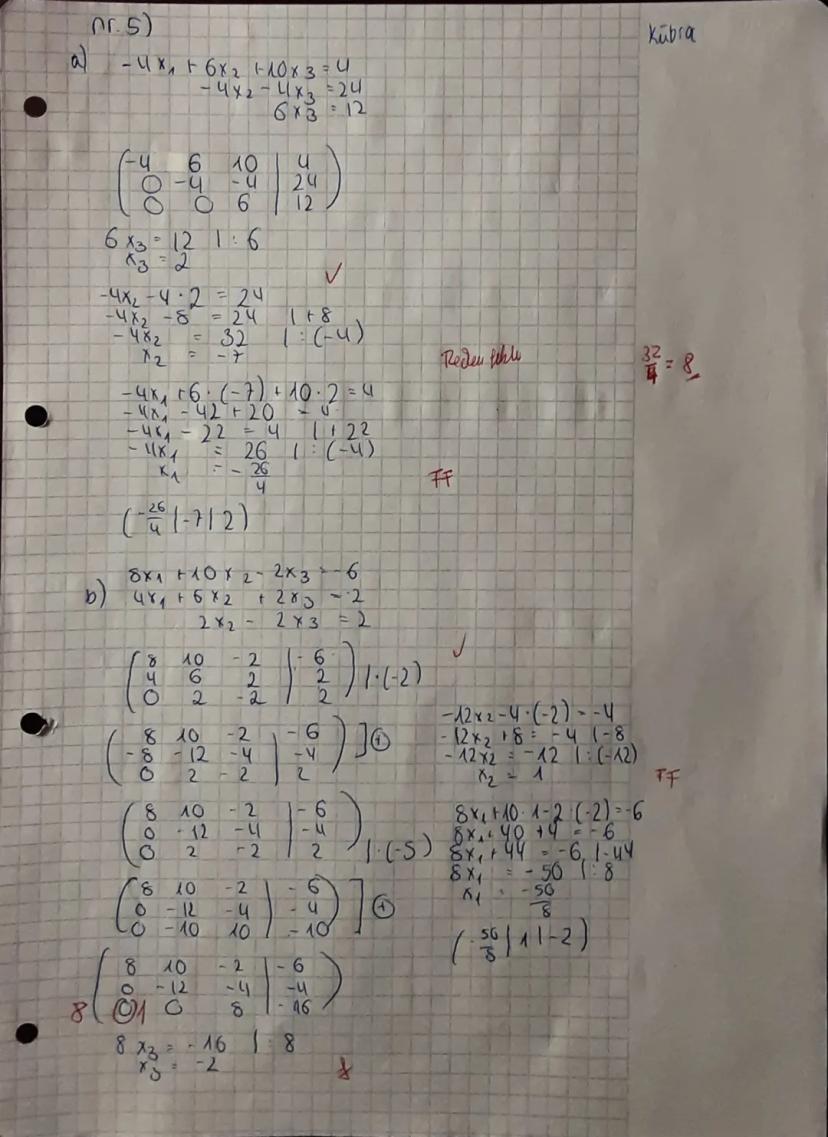 Nr. 5)
Kübra
a) -4x₁ + 6x₂ + 10x₃ = 4
-4x₂ - 4x₃ = 24
6x₃ = 12
(-4 6 10 | 4)
(0 -4 -4 | 24)
(0 0 6 | 12)
6x₃ = 12 | : 6
x₃ = 2
✓
-4x₂ - 4 · 2 = 24
-4x₂ - 8 = 24 | + 8
-4x₂ = 32 | : (-4)
x₂ = -7
32/4 = 8
-4x₁ + 6 · (-7) + 10 · 2 = 4
-4x₁ - 42 + 20 = 4
-4x₁ - 22 = 4 | + 22
-4x₁ = 26 | : (-4)
x₁ = -26/4
FF
(-26/4 | -7 | 2)
b) 8x₁ + 10x₂ - 2x₃ = -6
4x₁ + 6x₂ + 2x₃ = 2
2x₂ - 2x₃ = 2
✓
(8 10 -2 | -6)
(4 6 2 | 2) | · (-2)
(0 2 -2 | 2)
(8 10 -2 | -6)
(-8 -12 -4 | -4) ] ⊕
(0 2 -2 | 2)
(8 10 -2 | -6)
(0 -12 -4 | -4)
(0 2 -2 | 2) | · (-5)
(8 10 -2 | -6)
(0 -12 -4 | -4) ] ⊕
(0 -10 10 | -10)
(8 10 -2 | -6)
(0 -12 -4 | -4)
8 (0 1 0 8 | -16)
8x₃ = -16 | : 8
x₃ = -2
-12x₂ - 4 · (-2) = -4
-12x₂ + 8 = -4 | - 8
-12x₂ = -12 | : (-12)
x₂ = 1
FF
8x₁ + 10 · 1 - 2 · (-2) = -6
8x₁ + 40 + 4 = -6
8x₁ + 44 = -6 | - 44
8x₁ = -50 | : 8
x₁ = -50/8
(-50/8 | 1 | -2)